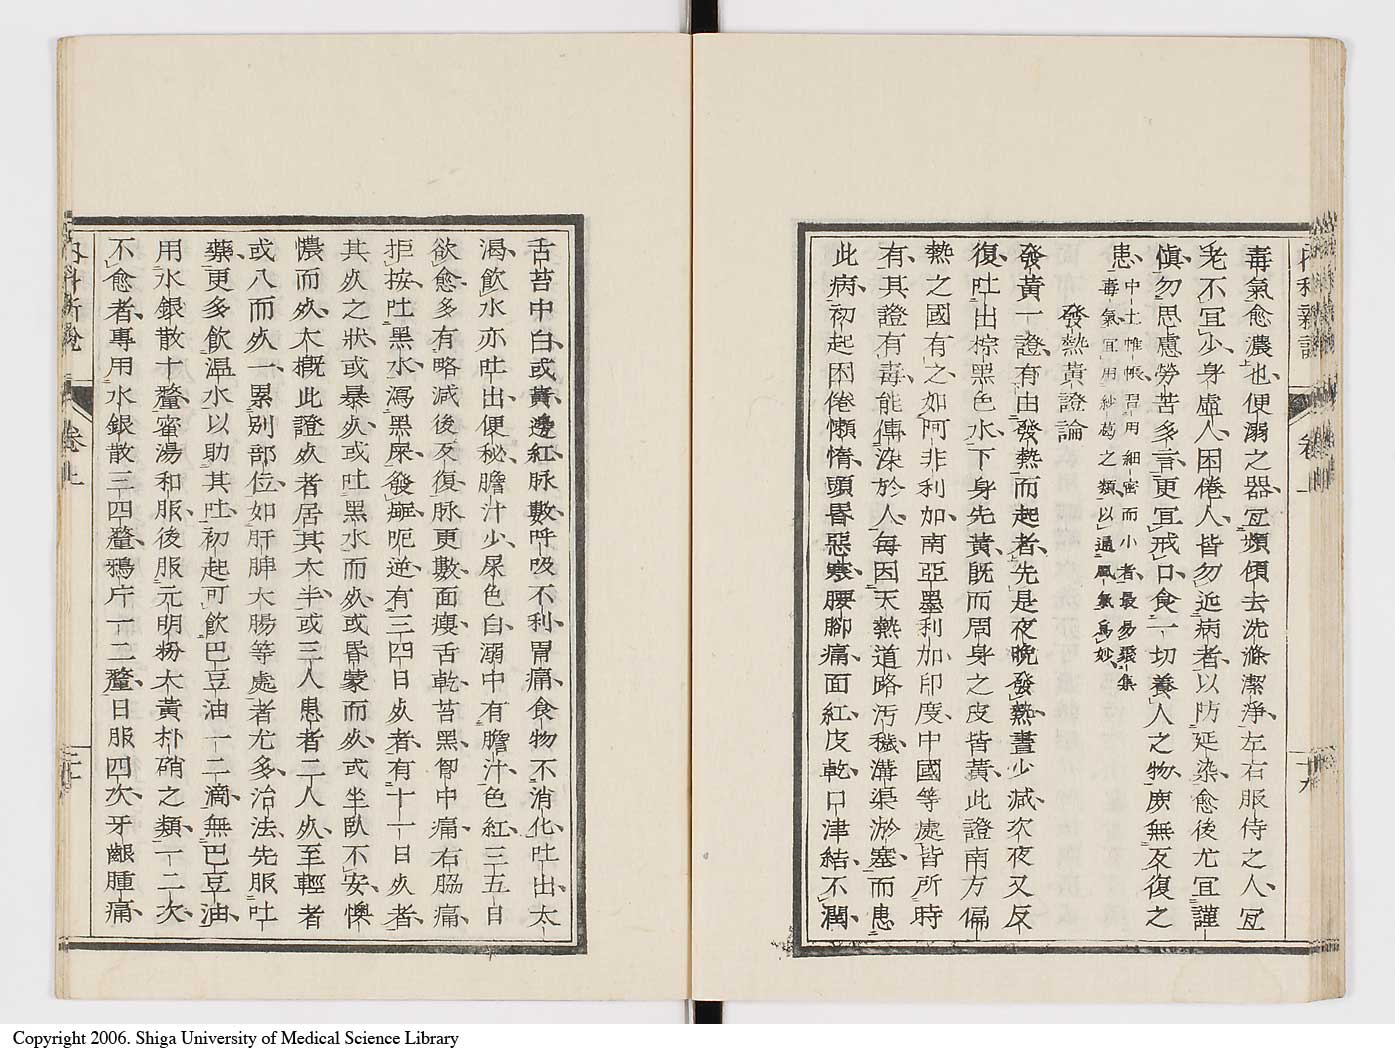 毒氣愈濃也便溺之器宜頻傾去洗滌潔淨左右服侍之人宜
老不宜少身虛人困倦人皆勿近病者以防延染愈後尤宜謹
愼勿思慮勞苦多言更宜戒口食一切養人之物庶無反復之
患
中土帷帳習用細密而小者最易聚集
毒氣宜用紗葛之類以通風氣爲妙
發熱黃證論
發黃一證有由發熱而起者先是夜晚發熱晝少減次夜又反
復吐出棕黑色水下身先黃旣而周身之皮皆黃此證南方偏
熱之國有之如阿非利加南亞墨利加印度中國等處皆所時
有其證有毒能傳染於人每因天熱道路汚穢溝渠淤塞而患
此病初起困倦懶惰頭昏惡寒腰脚痛面紅皮乾口津結不潤
內科新說
卷上
十九
舌苔中白或黃邊紅脉數呼吸不利胃痛食物不消化吐出太
渴飮水亦吐出便秘膽汁少屎色白溺中有膽汁色紅三五日
欲愈多有略減後反復脉更數面瘦舌乾苔黑胃中痛右脇痛
拒按吐黑水瀉黑屎發瘚呃逆有三四日死者有十一日死者
其死之狀或暴死或吐黑水而死或昏蒙而死或坐臥不安懊
憹而死大槪此證死者居其大半或三人患者二人死至輕者
或八而死一累別部位如肝脾大腸等處者尤多治法先服吐
藥更多飮温水以助其吐初起可飮巴豆油一二滴無巴豆油
用水銀散十釐蜜湯和服後服元明粉大黃朴硝之類一二次
不愈者專用水銀散三四釐鴉片一二釐日服四次牙齦腫痛
內科新說
卷上
二十
Copyright 2006. Shiga University of Medical Science Library